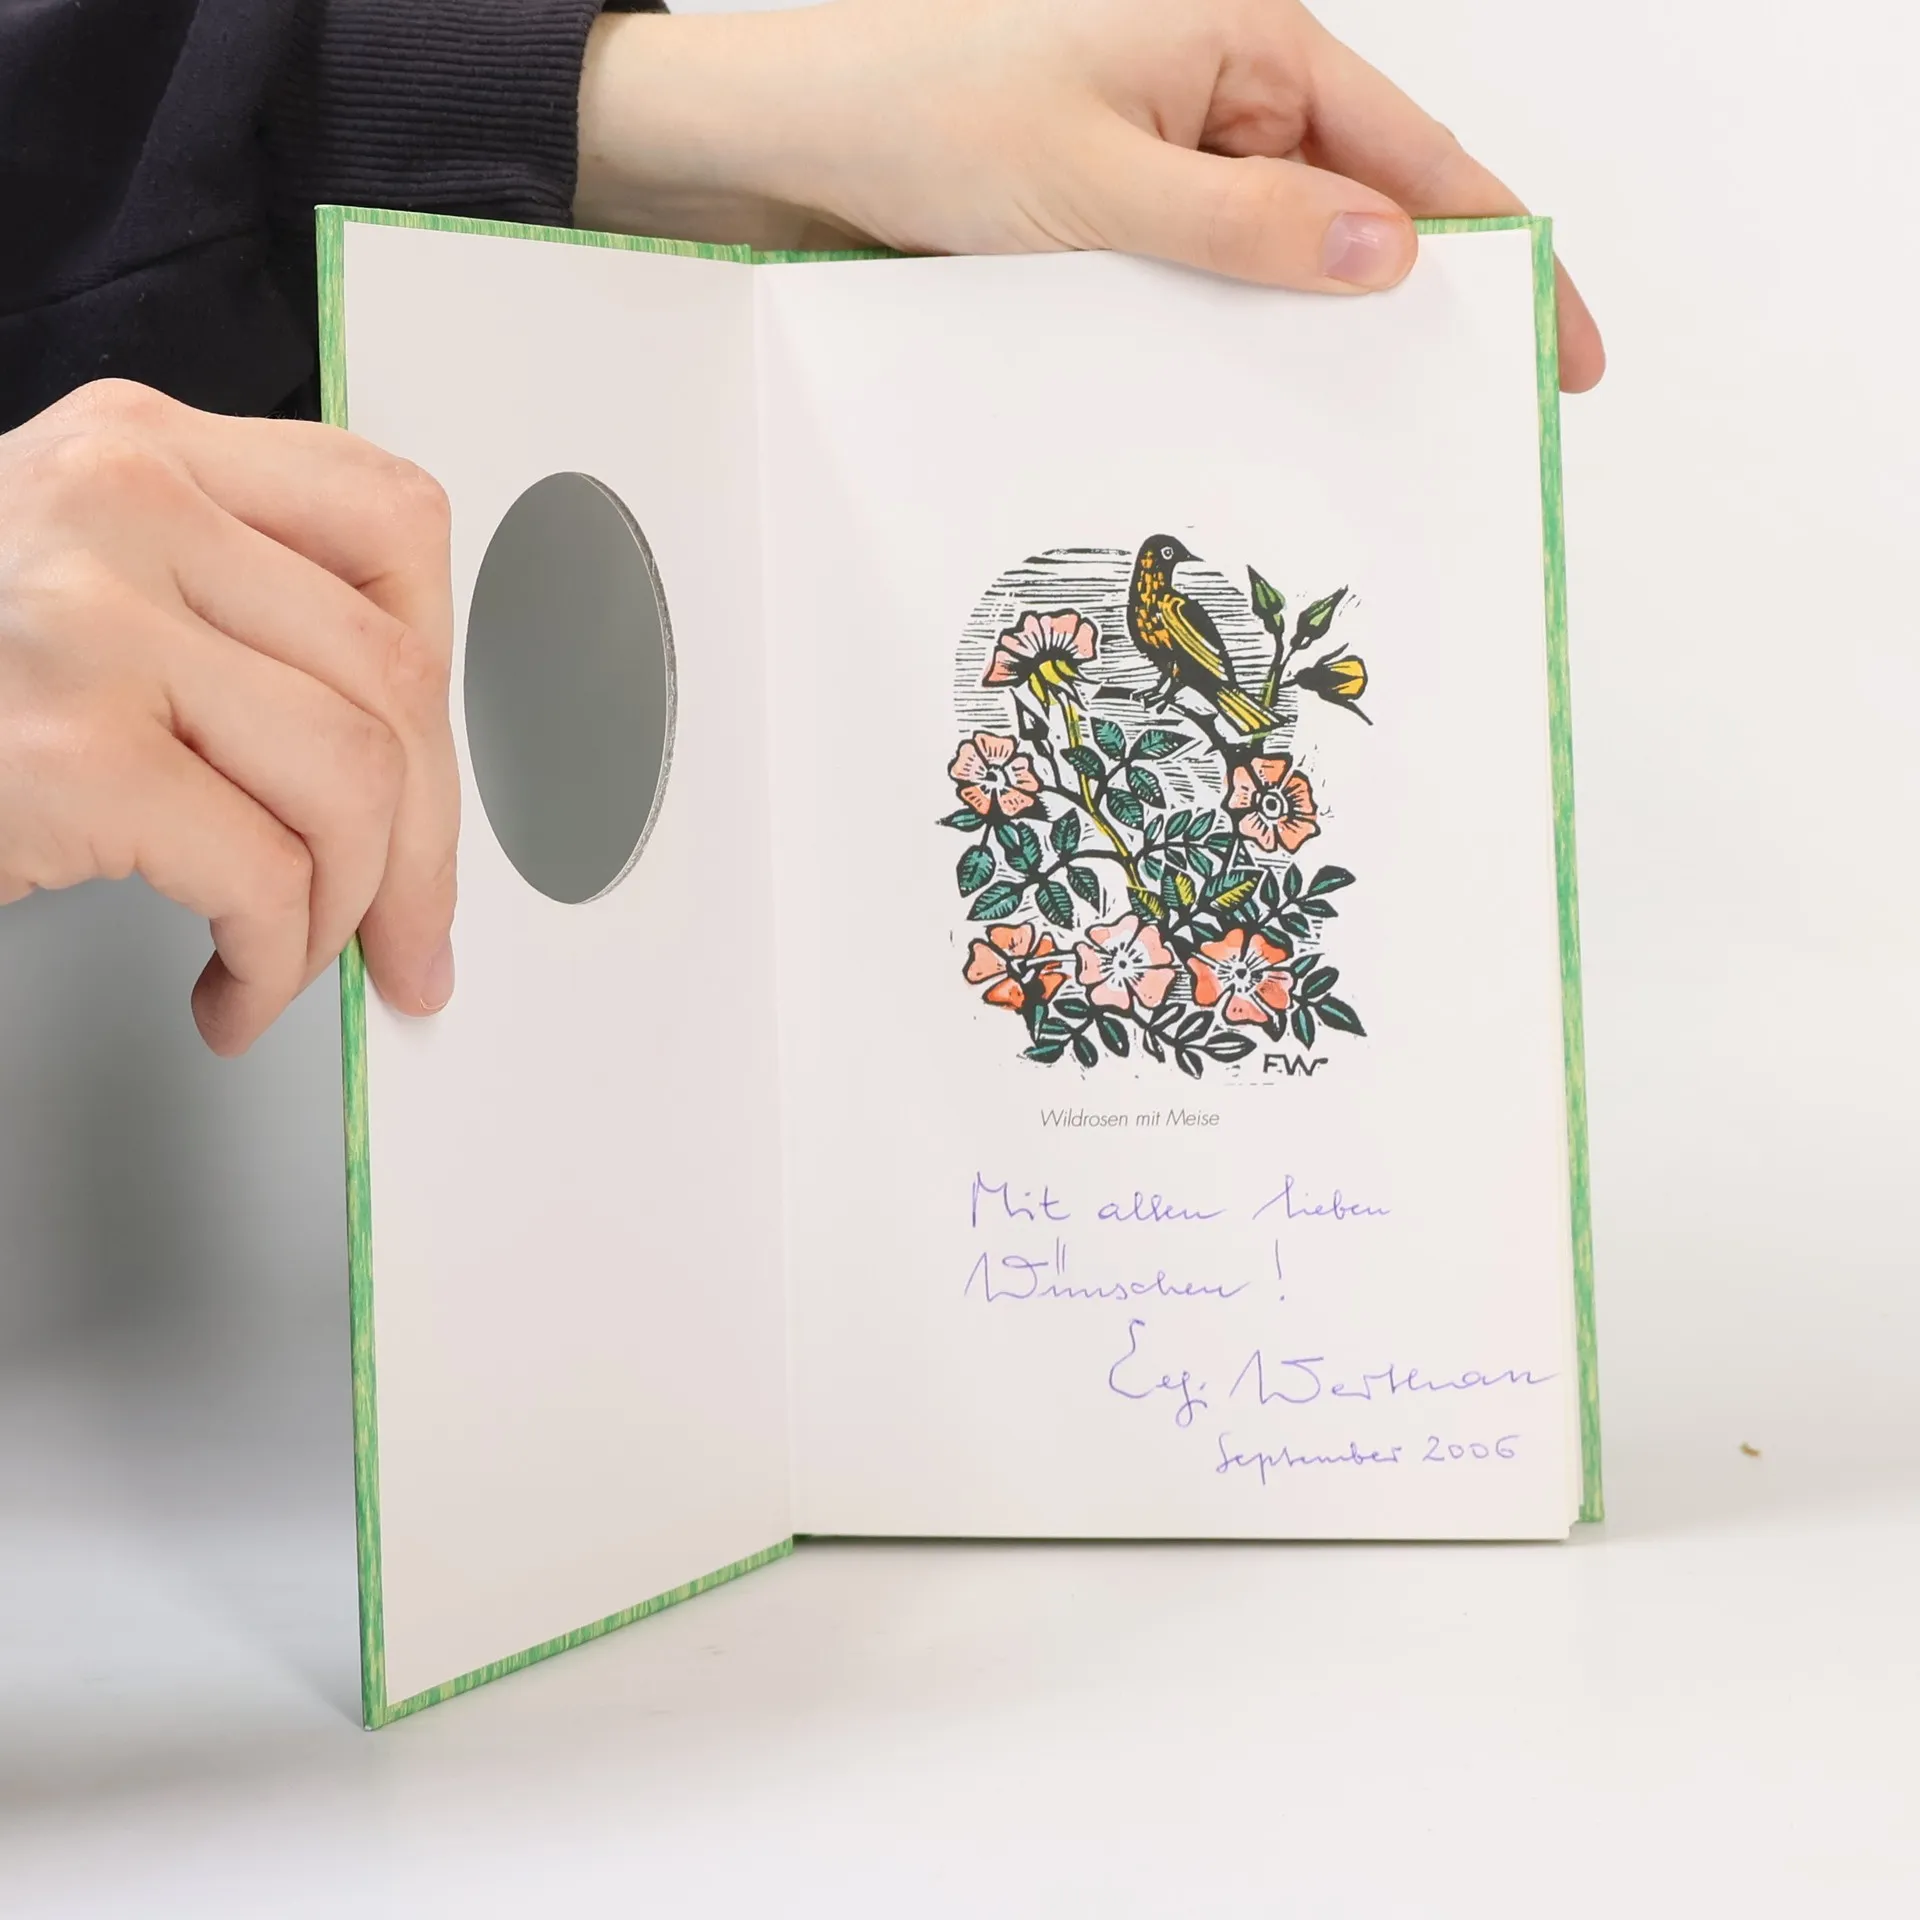 FW
Wildrosen mit Meise
Mit allen lieben
Wünschen!
September 2006